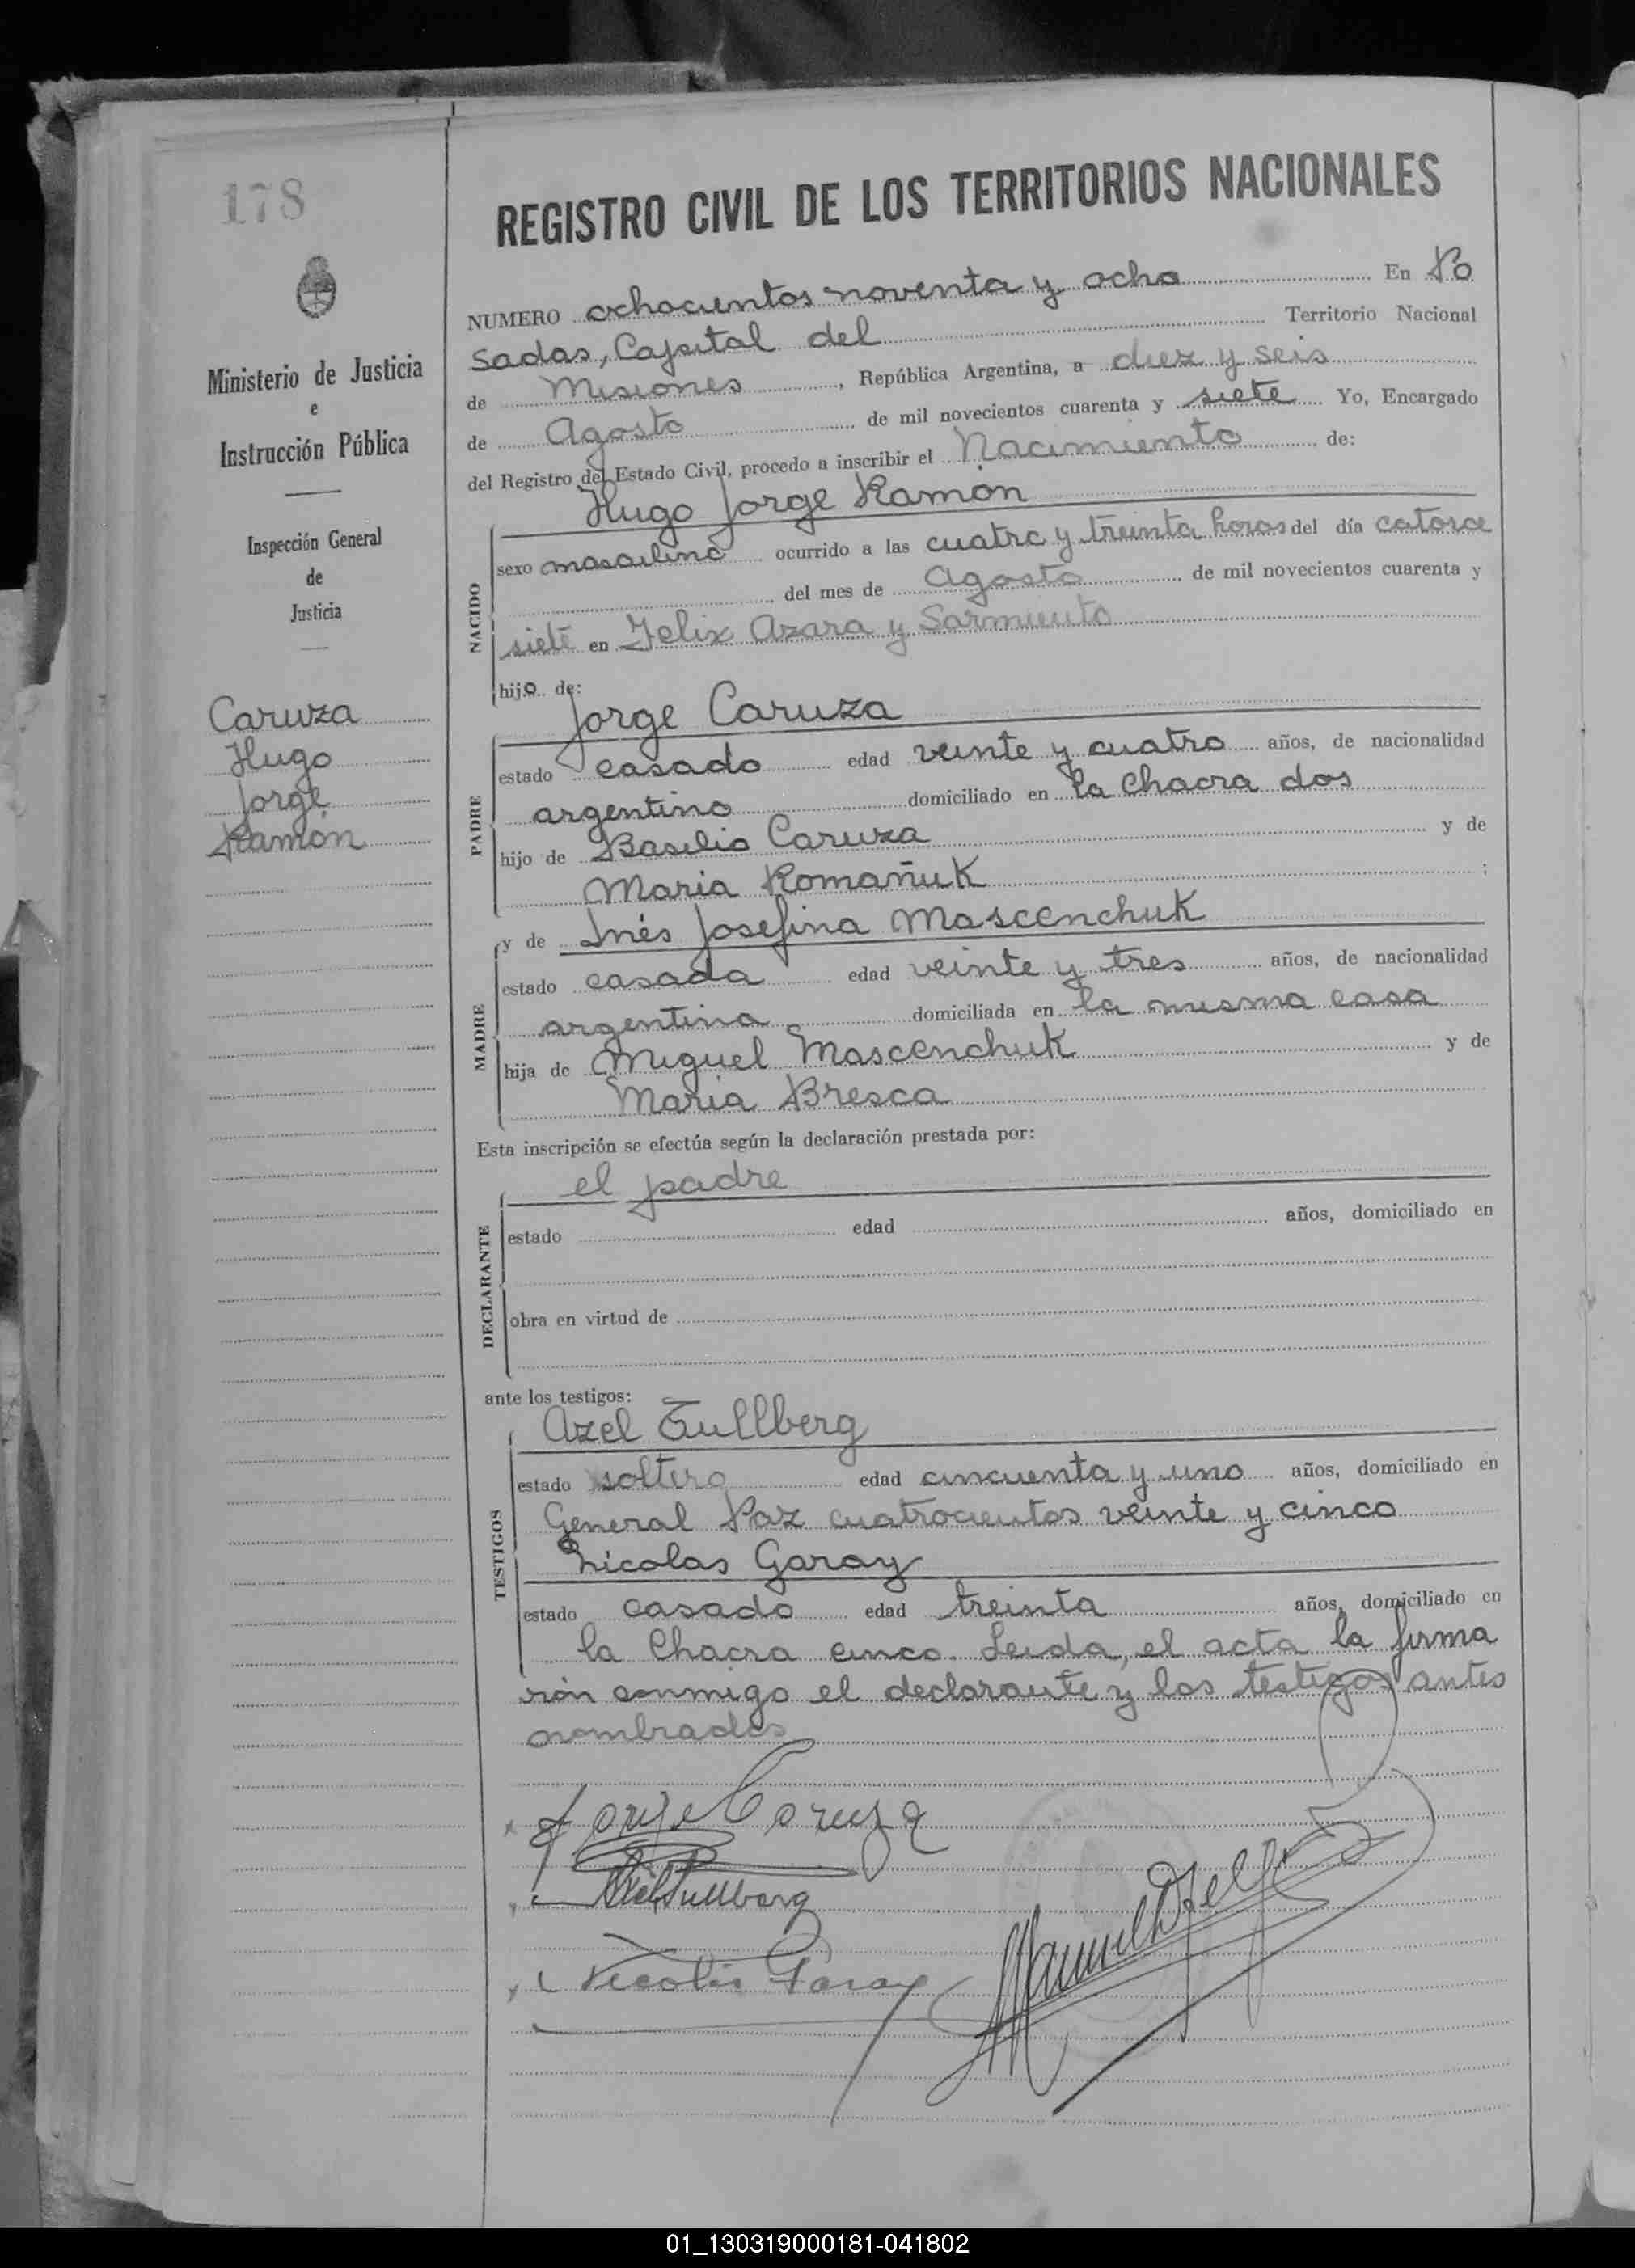 178
Ministerio de Justicia
e
Instrucción Pública
Inspección General
de
Justicia
Caruza
Hugo
Jorge
Ramón
REGISTRO CIVIL DE LOS TERRITORIOS NACIONALES
NUMERO ochocientos noventa y ocho En Po
sadas, Capital del Territorio Nacional
de Misiones, República Argentina, a diez y seis
de Agosto de mil novecientos cuarenta y siete Yo, Encargado
del Registro del Estado Civil, procedo a inscribir el Nacimiento de:
Hugo Jorge Ramon
NACIDO
sexo masculino ocurrido a las cuatro y treinta horas del día catorce
del mes de Agosto de mil novecientos cuarenta y
siete en Felix Azara y Sarmiento
hijo de:
Jorge Caruza
PADRE
estado casado edad veinte y cuatro años, de nacionalidad
argentino domiciliado en la Chacra dos
hijo de Basilio Caruza y de
Maria Romañuk ;
y de Inés Josefina Mascenchuk
MADRE
estado casada edad veinte y tres años, de nacionalidad
argentina domiciliada en la misma casa
hija de Miguel Mascenchuk y de
Maria Bresca
Esta inscripción se efectúa según la declaración prestada por:
el padre
DECLARANTE
estado edad años, domiciliado en
obra en virtud de
ante los testigos:
Axel Tullberg
TESTIGOS
estado soltero edad cincuenta y uno años, domiciliado en
General Paz cuatrocientos veinte y cinco
Nicolas Garay
estado casado edad treinta años, domiciliado en
la Chacra cinco. Leida, el acta la firma
rón conmigo el declarante y los testigos antes
nombrados
Jorge Caruza
Axel Tullberg
Nicolás Garay
01_130319000181-041802